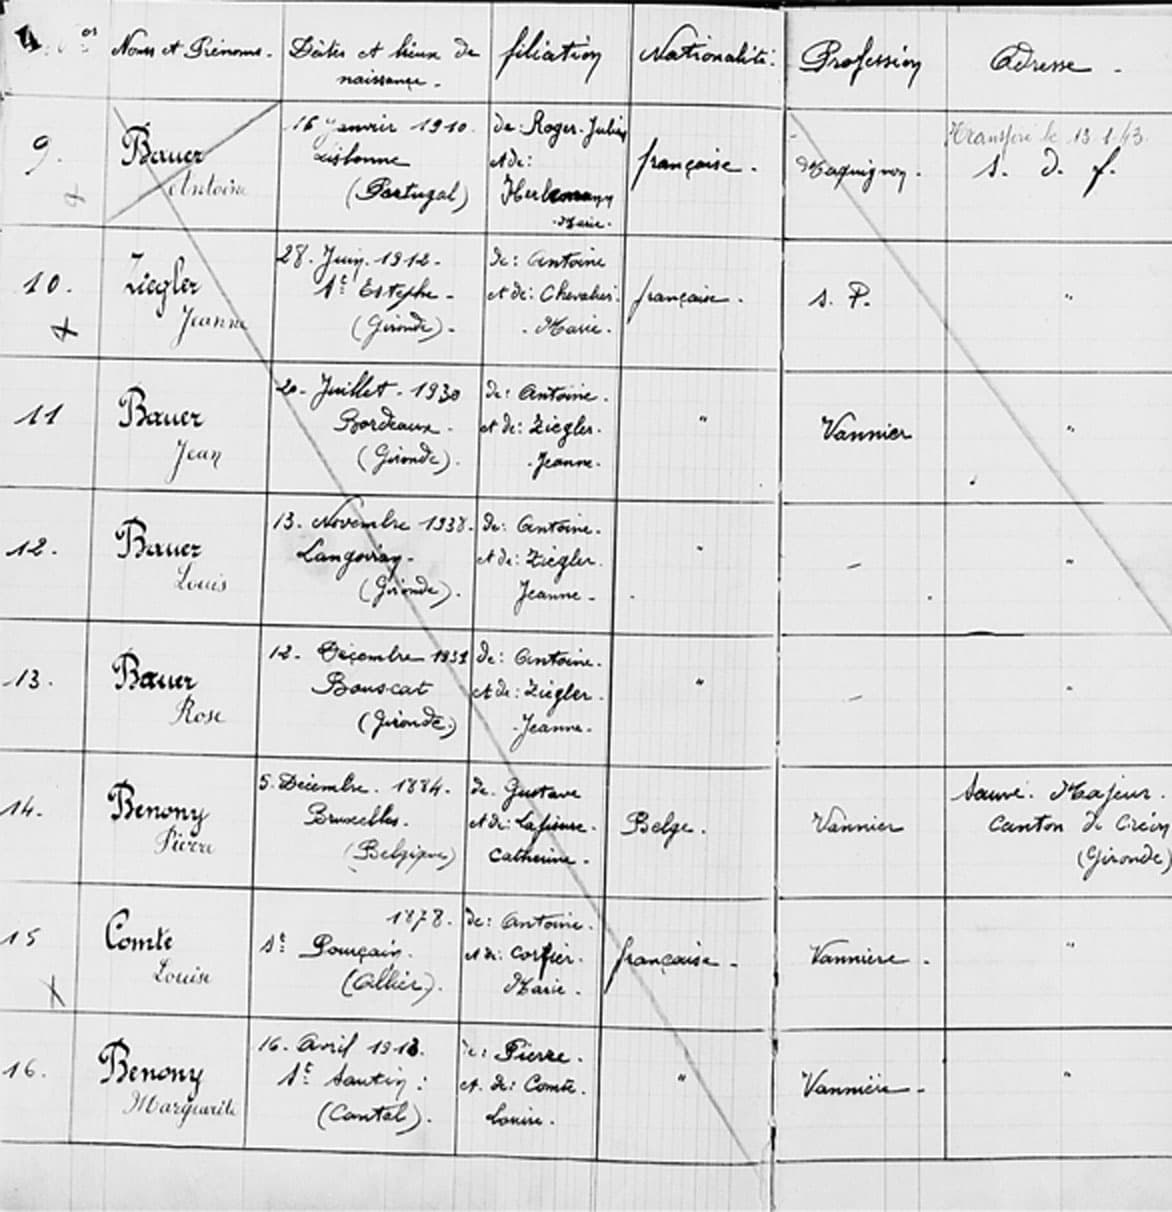 Noms et Prénoms. Dates et lieux de naissance. filiation Nationalité: Profession Adresse.
9. Bauer Antoine
16 Janvier 1910.
Lisbonne
(Portugal)
de: Roger. Julien
et de:
Marie.
française.
Maquignon.
Transféré le 13.1.43.
s. d. f.
10. Ziegler Jeanne
28. Juin. 1912.
St Estèphe.
(Gironde).
de: Antoine
et de: Chevalier.
Marie.
française.
s. P.
"
11 Bauer Jean
20. Juillet. 1930
Bordeaux.
(Gironde).
de: Antoine.
et de: Ziegler.
Jeanne.
"
Vannier
"
12. Bauer Louis
13. Novembre 1938.
Langoiran.
(Gironde).
de: Antoine.
et de: Ziegler.
Jeanne.
"
"
13. Bauer Rose
12. Décembre
Bouscat
(Gironde.)
de: Antoine.
et de: Ziegler.
Jeanne.
"
"
14. Benony Pierre
5. Décembre. 1884.
Bruxelles.
(Belgique)
de. Gustave
et de:
Catherine.
Belge.
Vannier
Sauve. Majeur.
Canton de Créon
(Gironde)
15 Comte Louise
1878.
St Pourçain.
(Allier).
de: Antoine.
et de: Corfier.
Marie.
française.
Vannière.
"
16. Benony Marguerite
16. Avril 1913.
St Santin:
(Cantal).
de: Pierre.
et. de: Comte.
Louise.
"
Vannière.
"